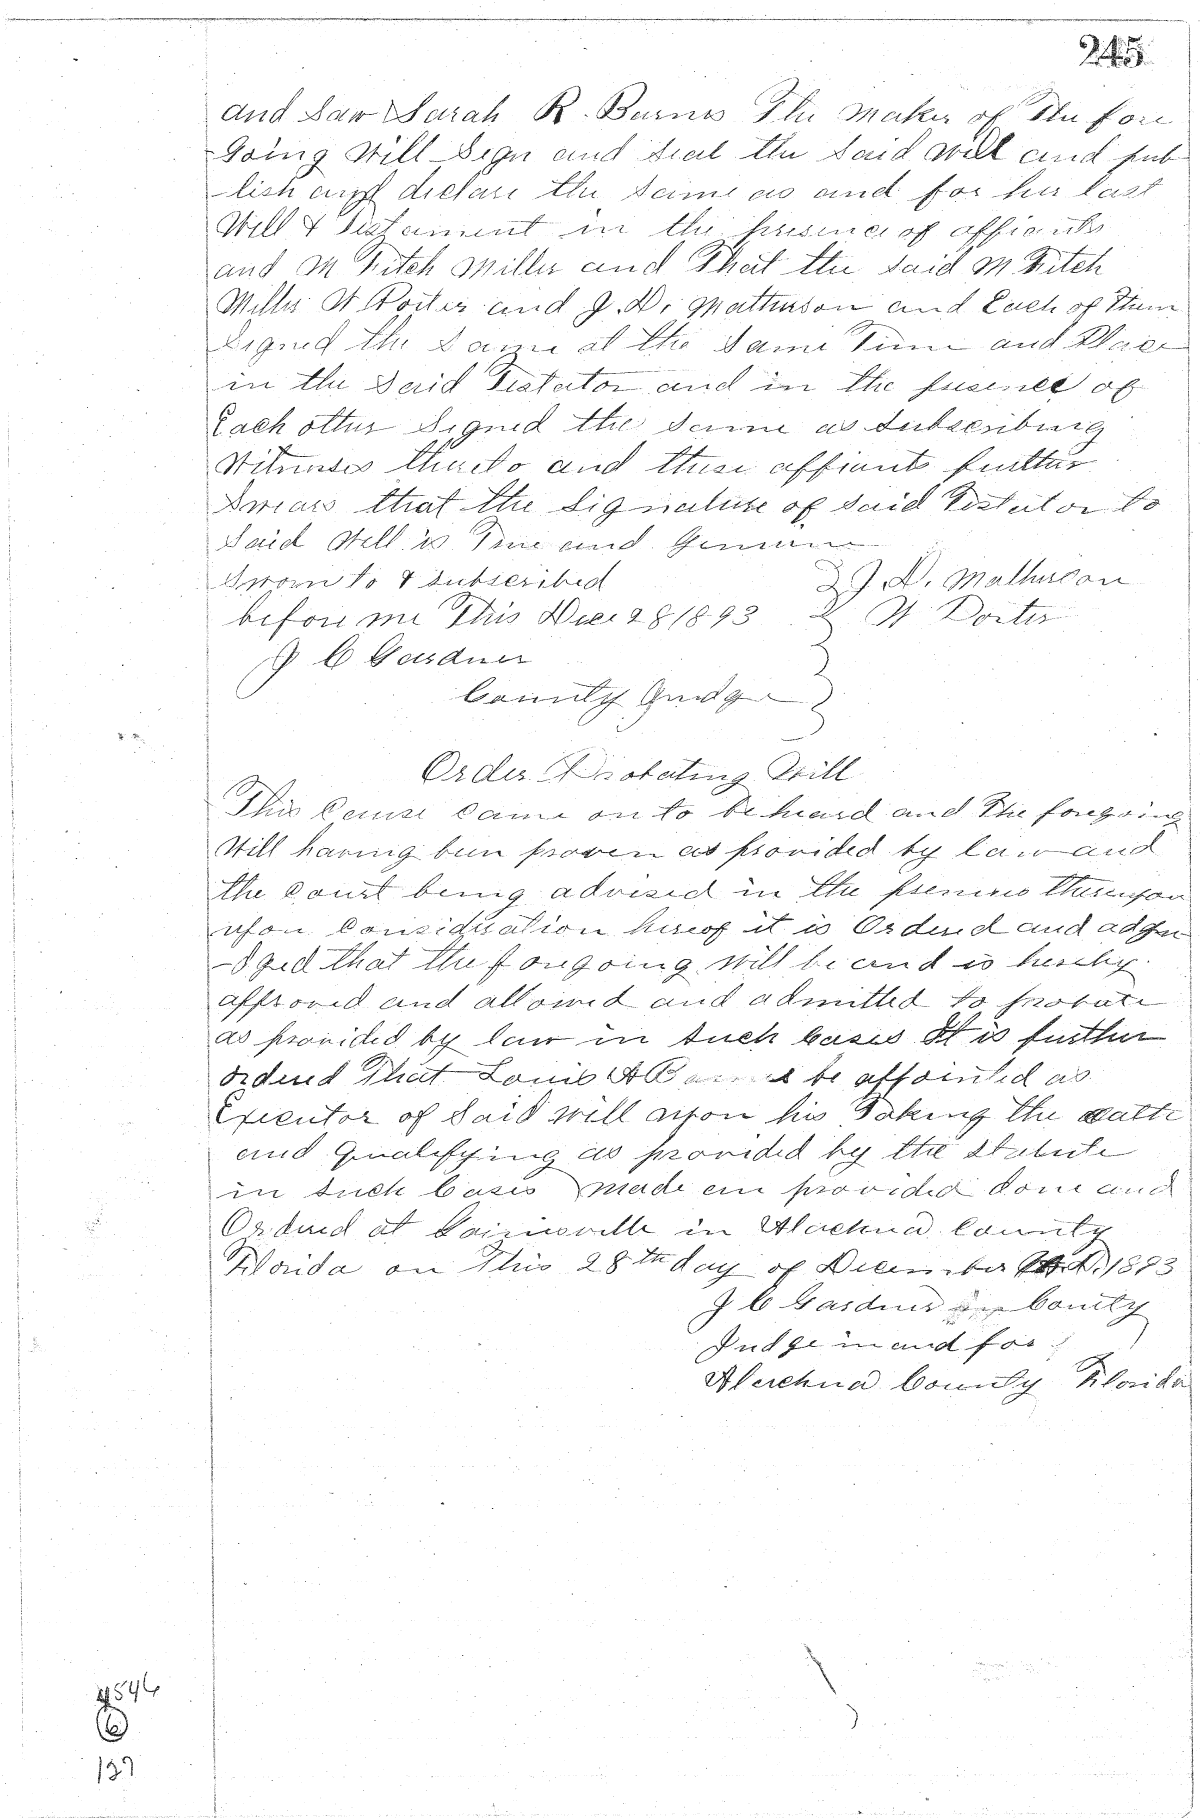 245
and Saw Sarah R. Burnes The Maker of The fore
Going Will Sign and Seal the Said Will and pub
-lish and declare the Same as and for her last
Will & Testament in the presence of affiants
and M Fitch Miller and That the Said M Fitch
Miller W Porter and J. D. Matheson and Each of Them
Signed the Same at the Same Time and Place
in the Said Testator and in the presence of
Each other Signed the Same as Subscribing
Witnesses thereto and these affiants further
Swears that the Signature of Said Testator to
Said Will is True and Genuine
Sworn to & Subscribed J. D. Matheson
before me This Dec 28 1893 W Porter
J C Gardner
County Judge
Order Probating Will
This Cause Came on to be heard and The foregoing
Will having been proven as provided by law and
the Court being advised in the premises thereupon
upon Consideration hereof it is Ordered and adju
-dged that the foregoing Will be and is hereby
approved and allowed and admitted to probate
as provided by law in Such Cases It is further
ordered That Louis A be appointed as
Executor of Said Will upon his Taking the oath
and Qualifying as provided by the Statute
in Such Cases made an provided done and
Ordered at Gainesville in Alachua County
Florida on This 28th day of December A.D. 1893
J C Gardner County
Judge in and for
Alachua County Florida
4546
6
137